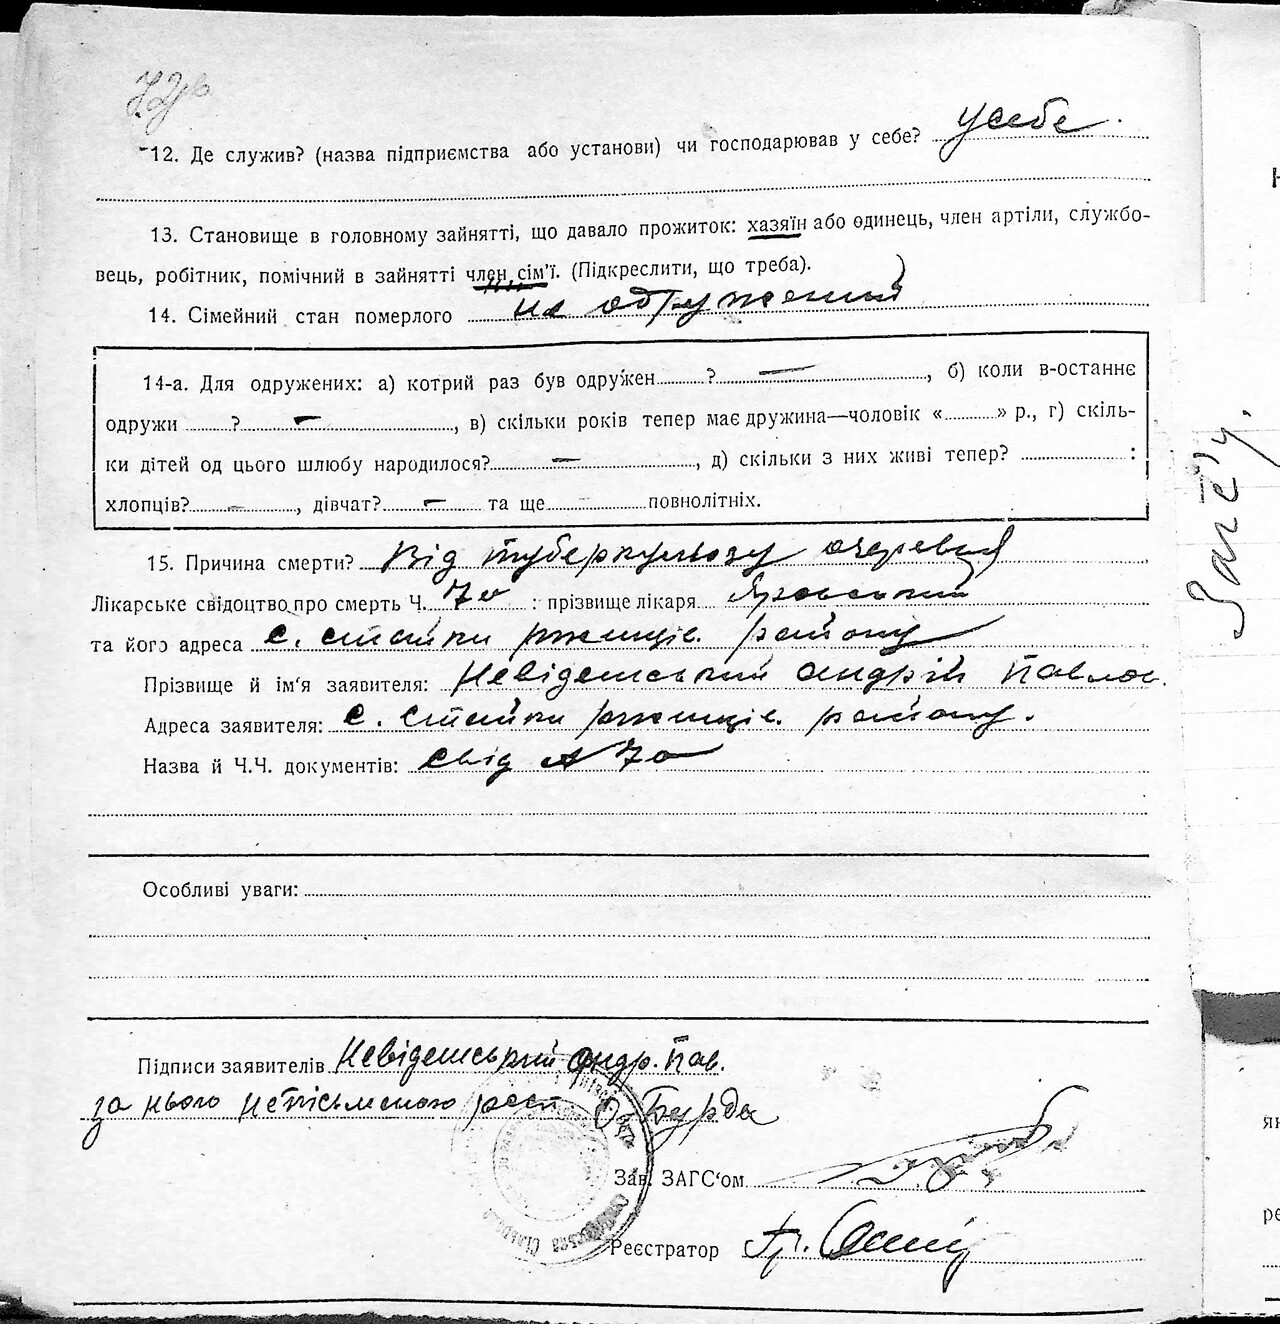 12. Де служив? (назва підприємства або установи) чи господарював у себе? у себе.
13. Становище в головному зайнятті, що давало прожиток: хазяїн або одинець, член артіли, службо-
вець, робітник, помічний в зайнятті член сім'ї. (Підкреслити, що треба).
14. Сімейний стан померлого не одружений
14-а. Для одружених: а) котрий раз був одружен ? —, б) коли в-останнє
одружи ? —, в) скільки років тепер має дружина—чоловік « » р., г) скіль-
ки дітей од цього шлюбу народилося? —, д) скільки з них живі тепер? :
хлопців? —, дівчат? — та ще — повнолітніх.
15. Причина смерти? Від туберкульозу
Лікарське свідоцтво про смерть Ч. 70 : прізвище лікаря
та його адреса с. Стайки ржищів. району
Прізвище й ім'я заявителя: Невідемський Андрій Павлов.
Адреса заявителя: с. Стайки ржищів. району.
Назва й Ч.Ч. документів: свід 70
Особливі уваги:
Підписи заявителів Невідемський Андр. Пав.
за нього неписьменого Бурда
Зав. ЗАГС'ом
Реєстратор